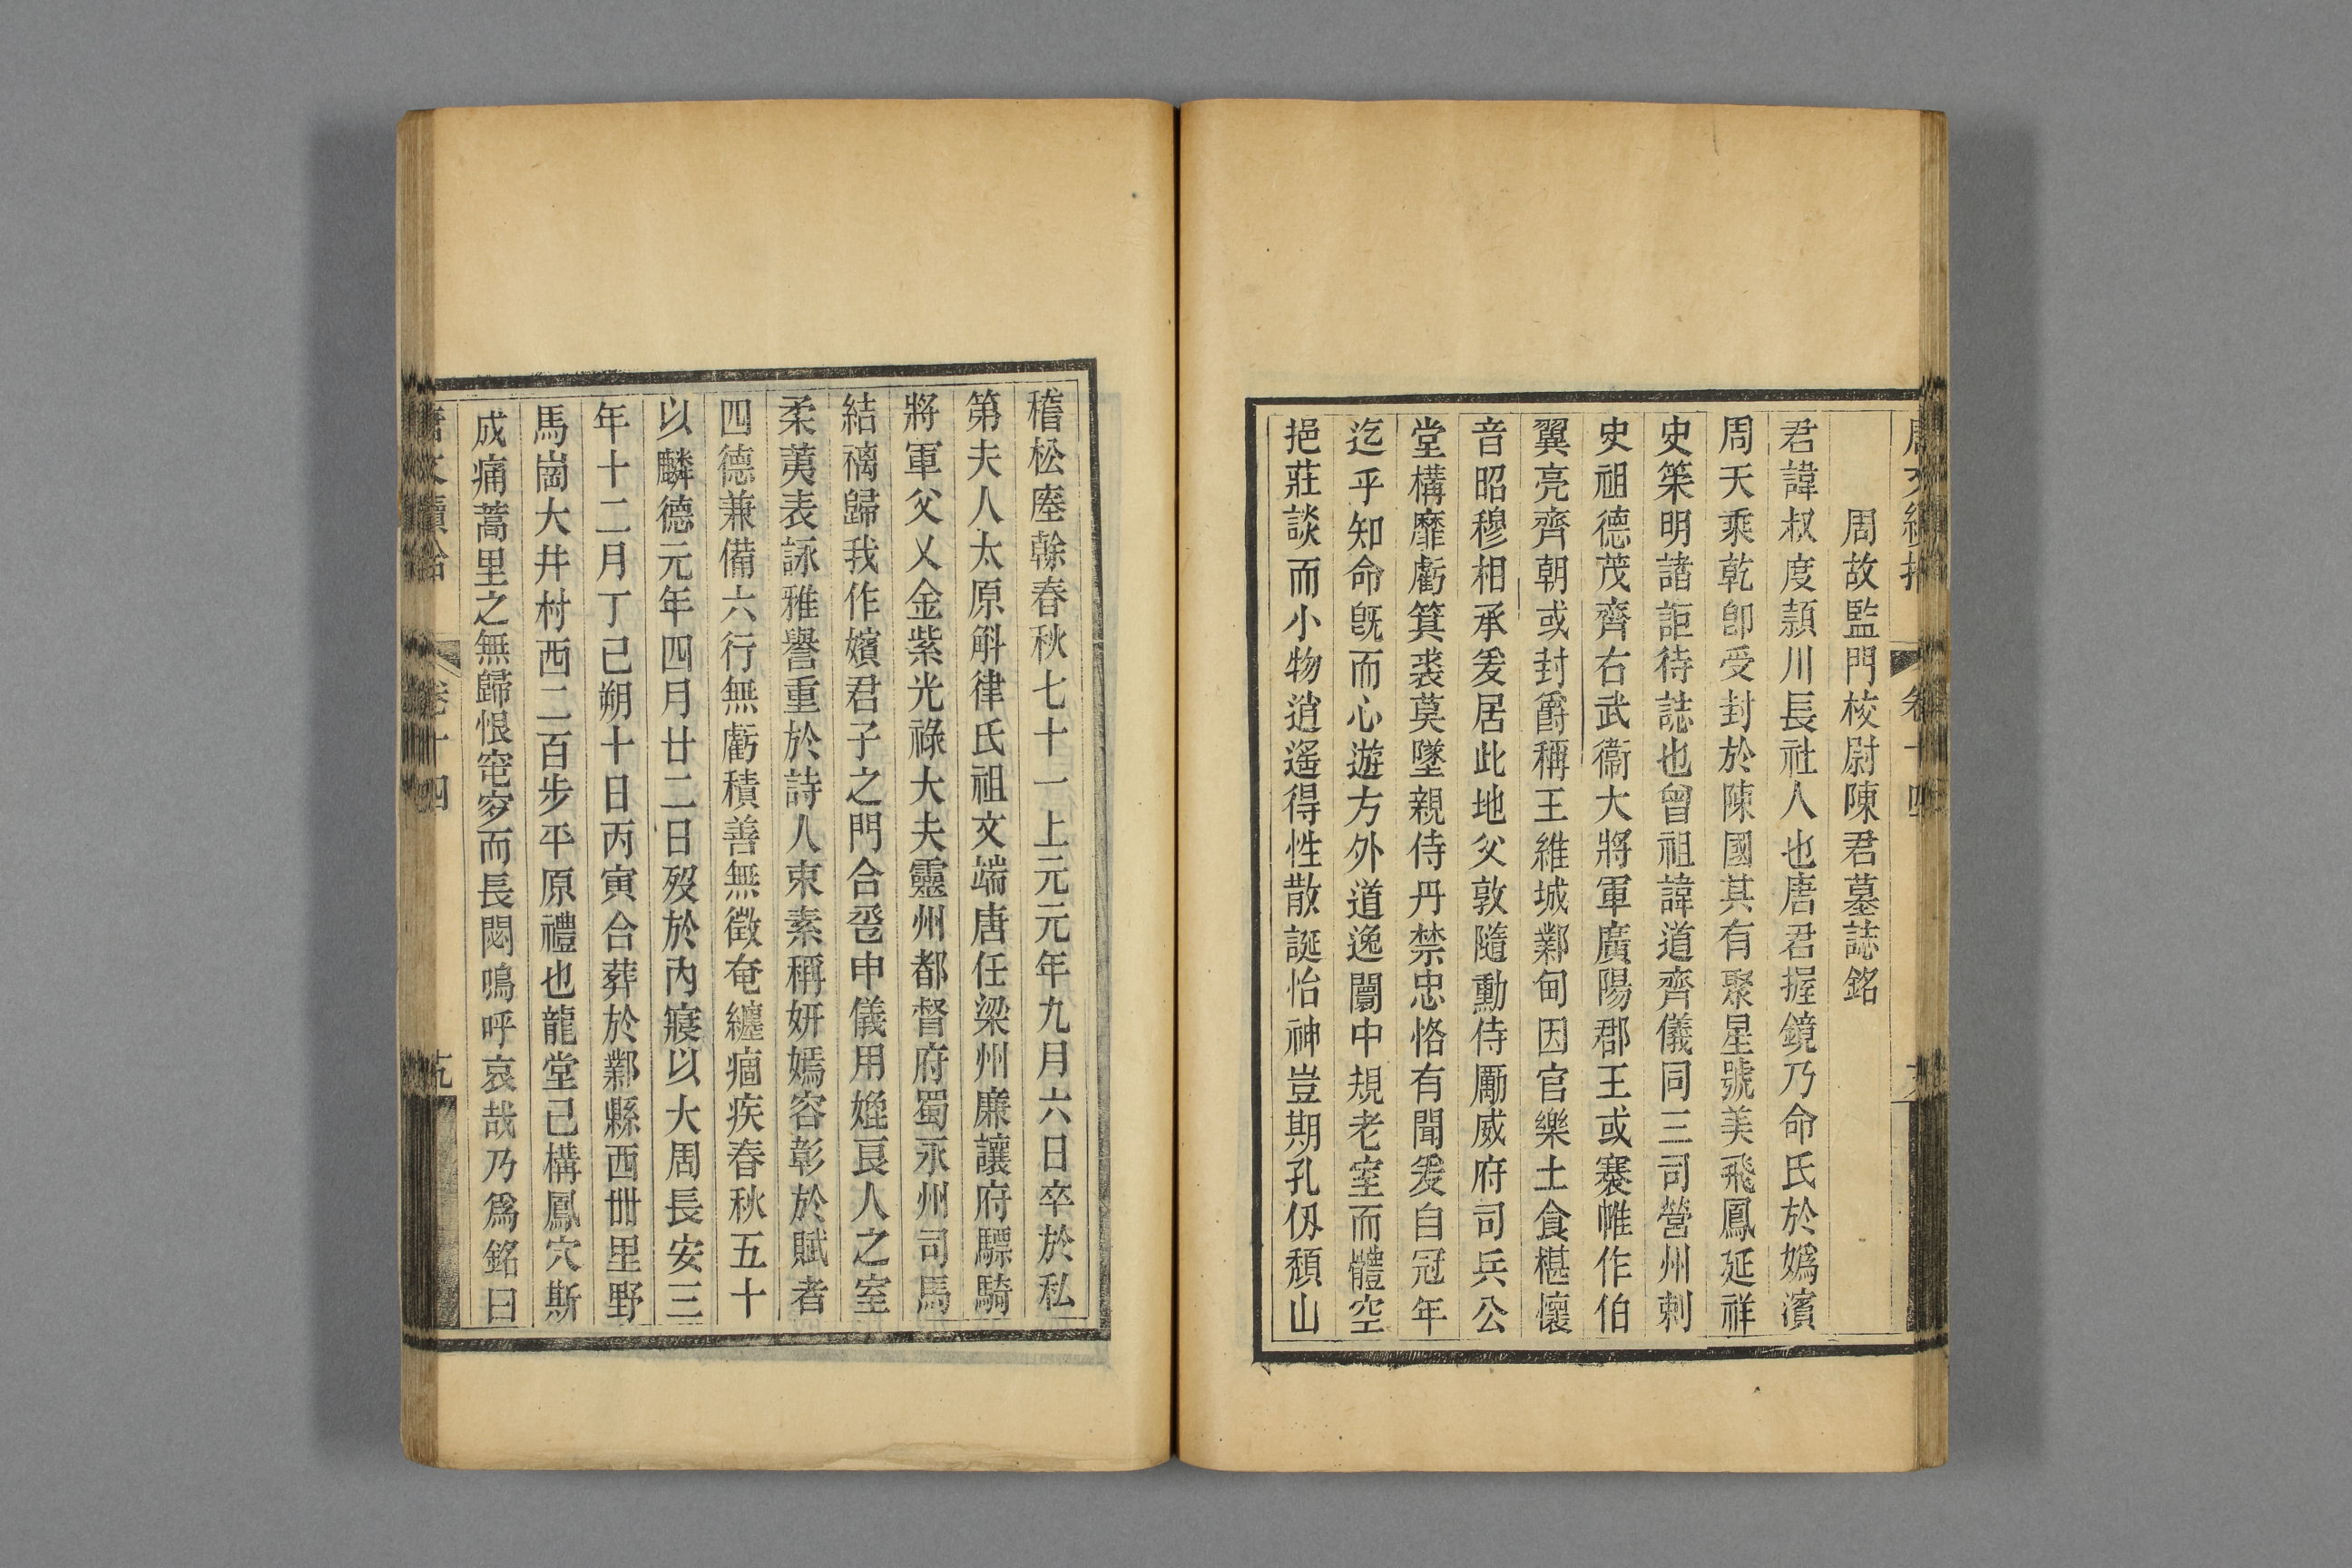 周故監門校尉陳君墓誌銘
君諱叔度潁川長社人也唐君握鏡乃命氏於嬀濱
周天乘乾卽受封於陳國其有聚星號美飛鳳延祥
史筞明諸詎待誌也曾祖諱道齊儀同三司營州刺
史祖德茂齊右武衞大將軍廣陽郡王或褰帷作伯
翼亮齊朝或封爵稱王維城鄴甸因官樂土食椹懷
音昭穆相承爰居此地父敦隨勳侍勵威府司兵公
堂構靡虧箕裘莫墜親侍丹禁忠恪有聞爰自冠年
迄乎知命旣而心遊方外道逸闤中規老室而體空
挹莊談而小物逍遙得性散誕怡神豈期孔仭頹山
稽松壓榦春秋七十一上元元年九月六日卒於私
第夫人太原斛律氏祖文端唐任梁州廉讓府驃騎
將軍父乂金紫光祿大夫靈州都督府蜀永州司馬
結褵歸我作嬪君子之門合巹申儀用媲良人之室
柔荑表詠雅譽重於詩人束素稱妍嫣容彰於賦者
四德兼備六行無虧積善無徵奄纏痼疾春秋五十
以麟德元年四月廿二日歿於內寢以大周長安三
年十二月丁巳朔十日丙寅合葬於鄴縣西卌里野
馬崗大井村西二百步平原禮也龍堂已構鳳穴斯
成痛蒿里之無歸恨窀穸而長閟嗚呼哀哉乃爲銘曰
唐文續拾 卷十四